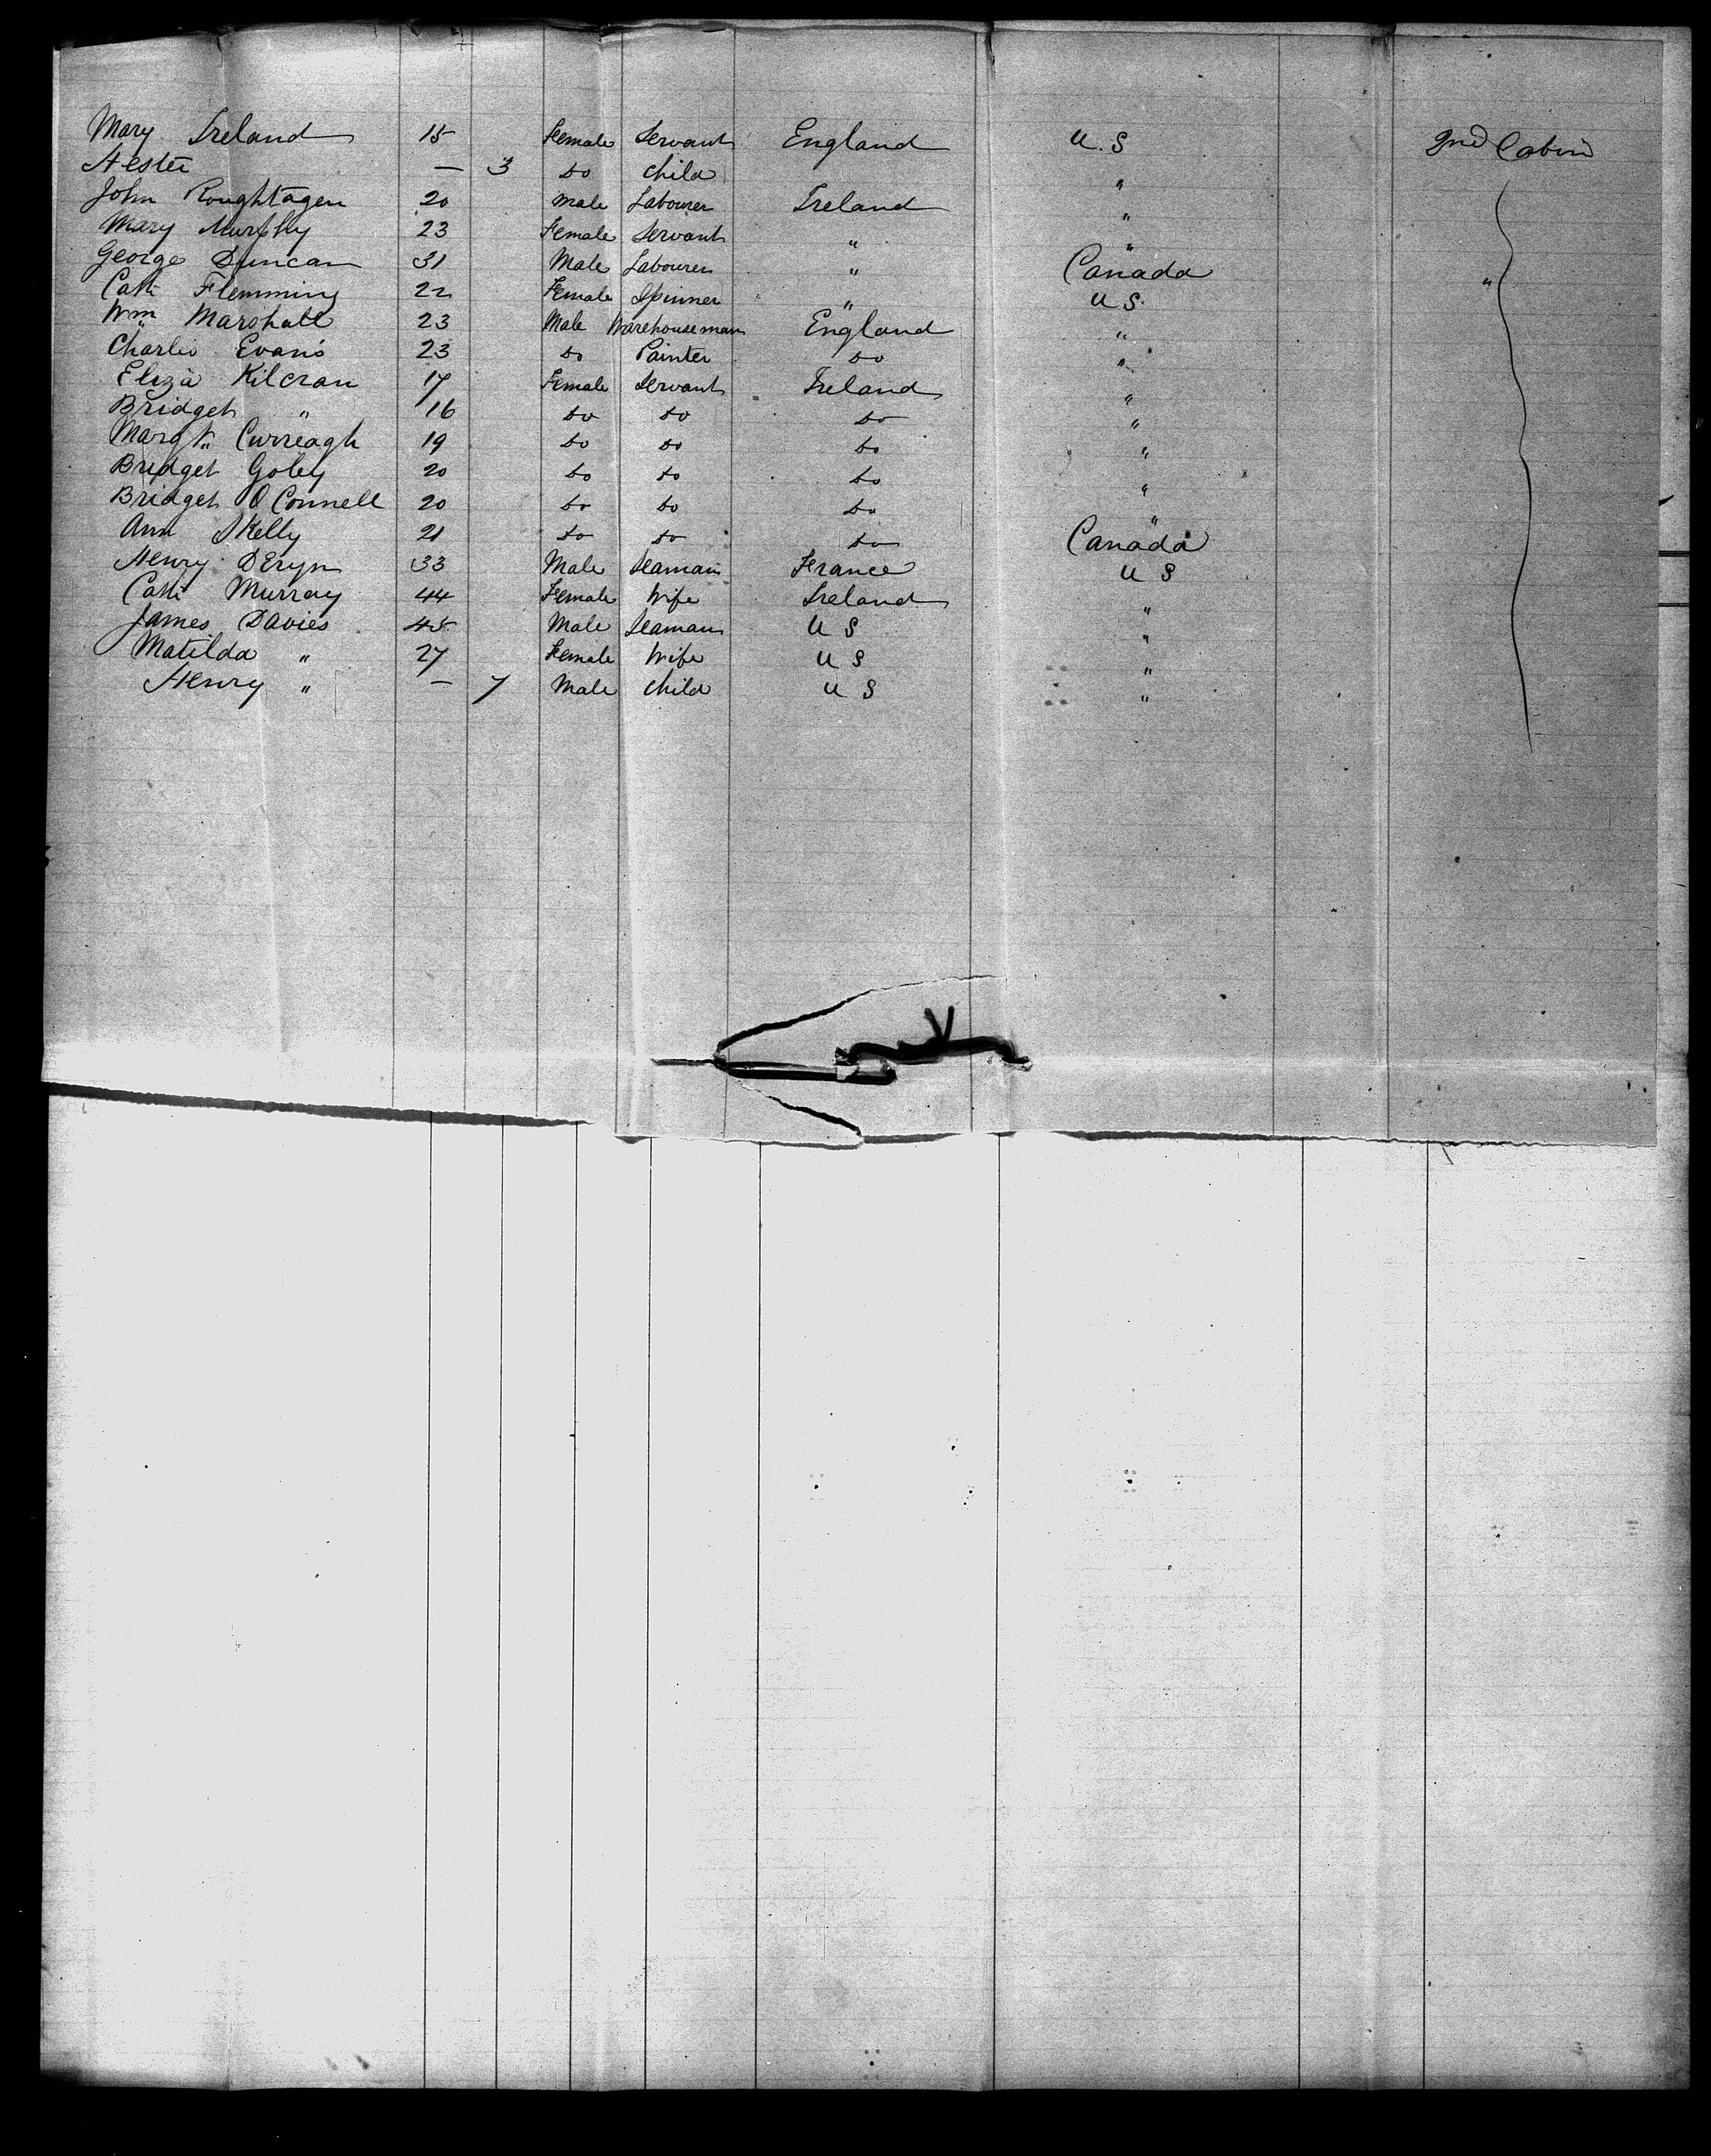 Mary Ireland 18 Female Servant England U.S 2nd Cabin
Hester — 3 do child "
John Roughtagen 20 male Labourer Ireland "
Mary Murphy 23 Female Servant " "
George Duncan 31 Male Labourer " Canada "
Cath Flemming 22 Female Spinner " U S.
Wm Marshall 23 Male Warehouseman England "
Charles Evans 23 do Painter do "
Eliza Kilcran 17 Female Servant Ireland "
Bridget " 16 do do do "
Margt Curreagh 19 do do do "
Bridget Goley 20 do do do "
Bridget O Connell 20 do do do "
Ann Skelly 21 do do do Canada
Henry DEryn 33 Male Seaman France U S
Cath Murray 44 Female Wife Ireland "
James Davies 45 Male Seaman U S "
Matilda " 27 Female Wife U S "
Henry " — 7 Male child U S "